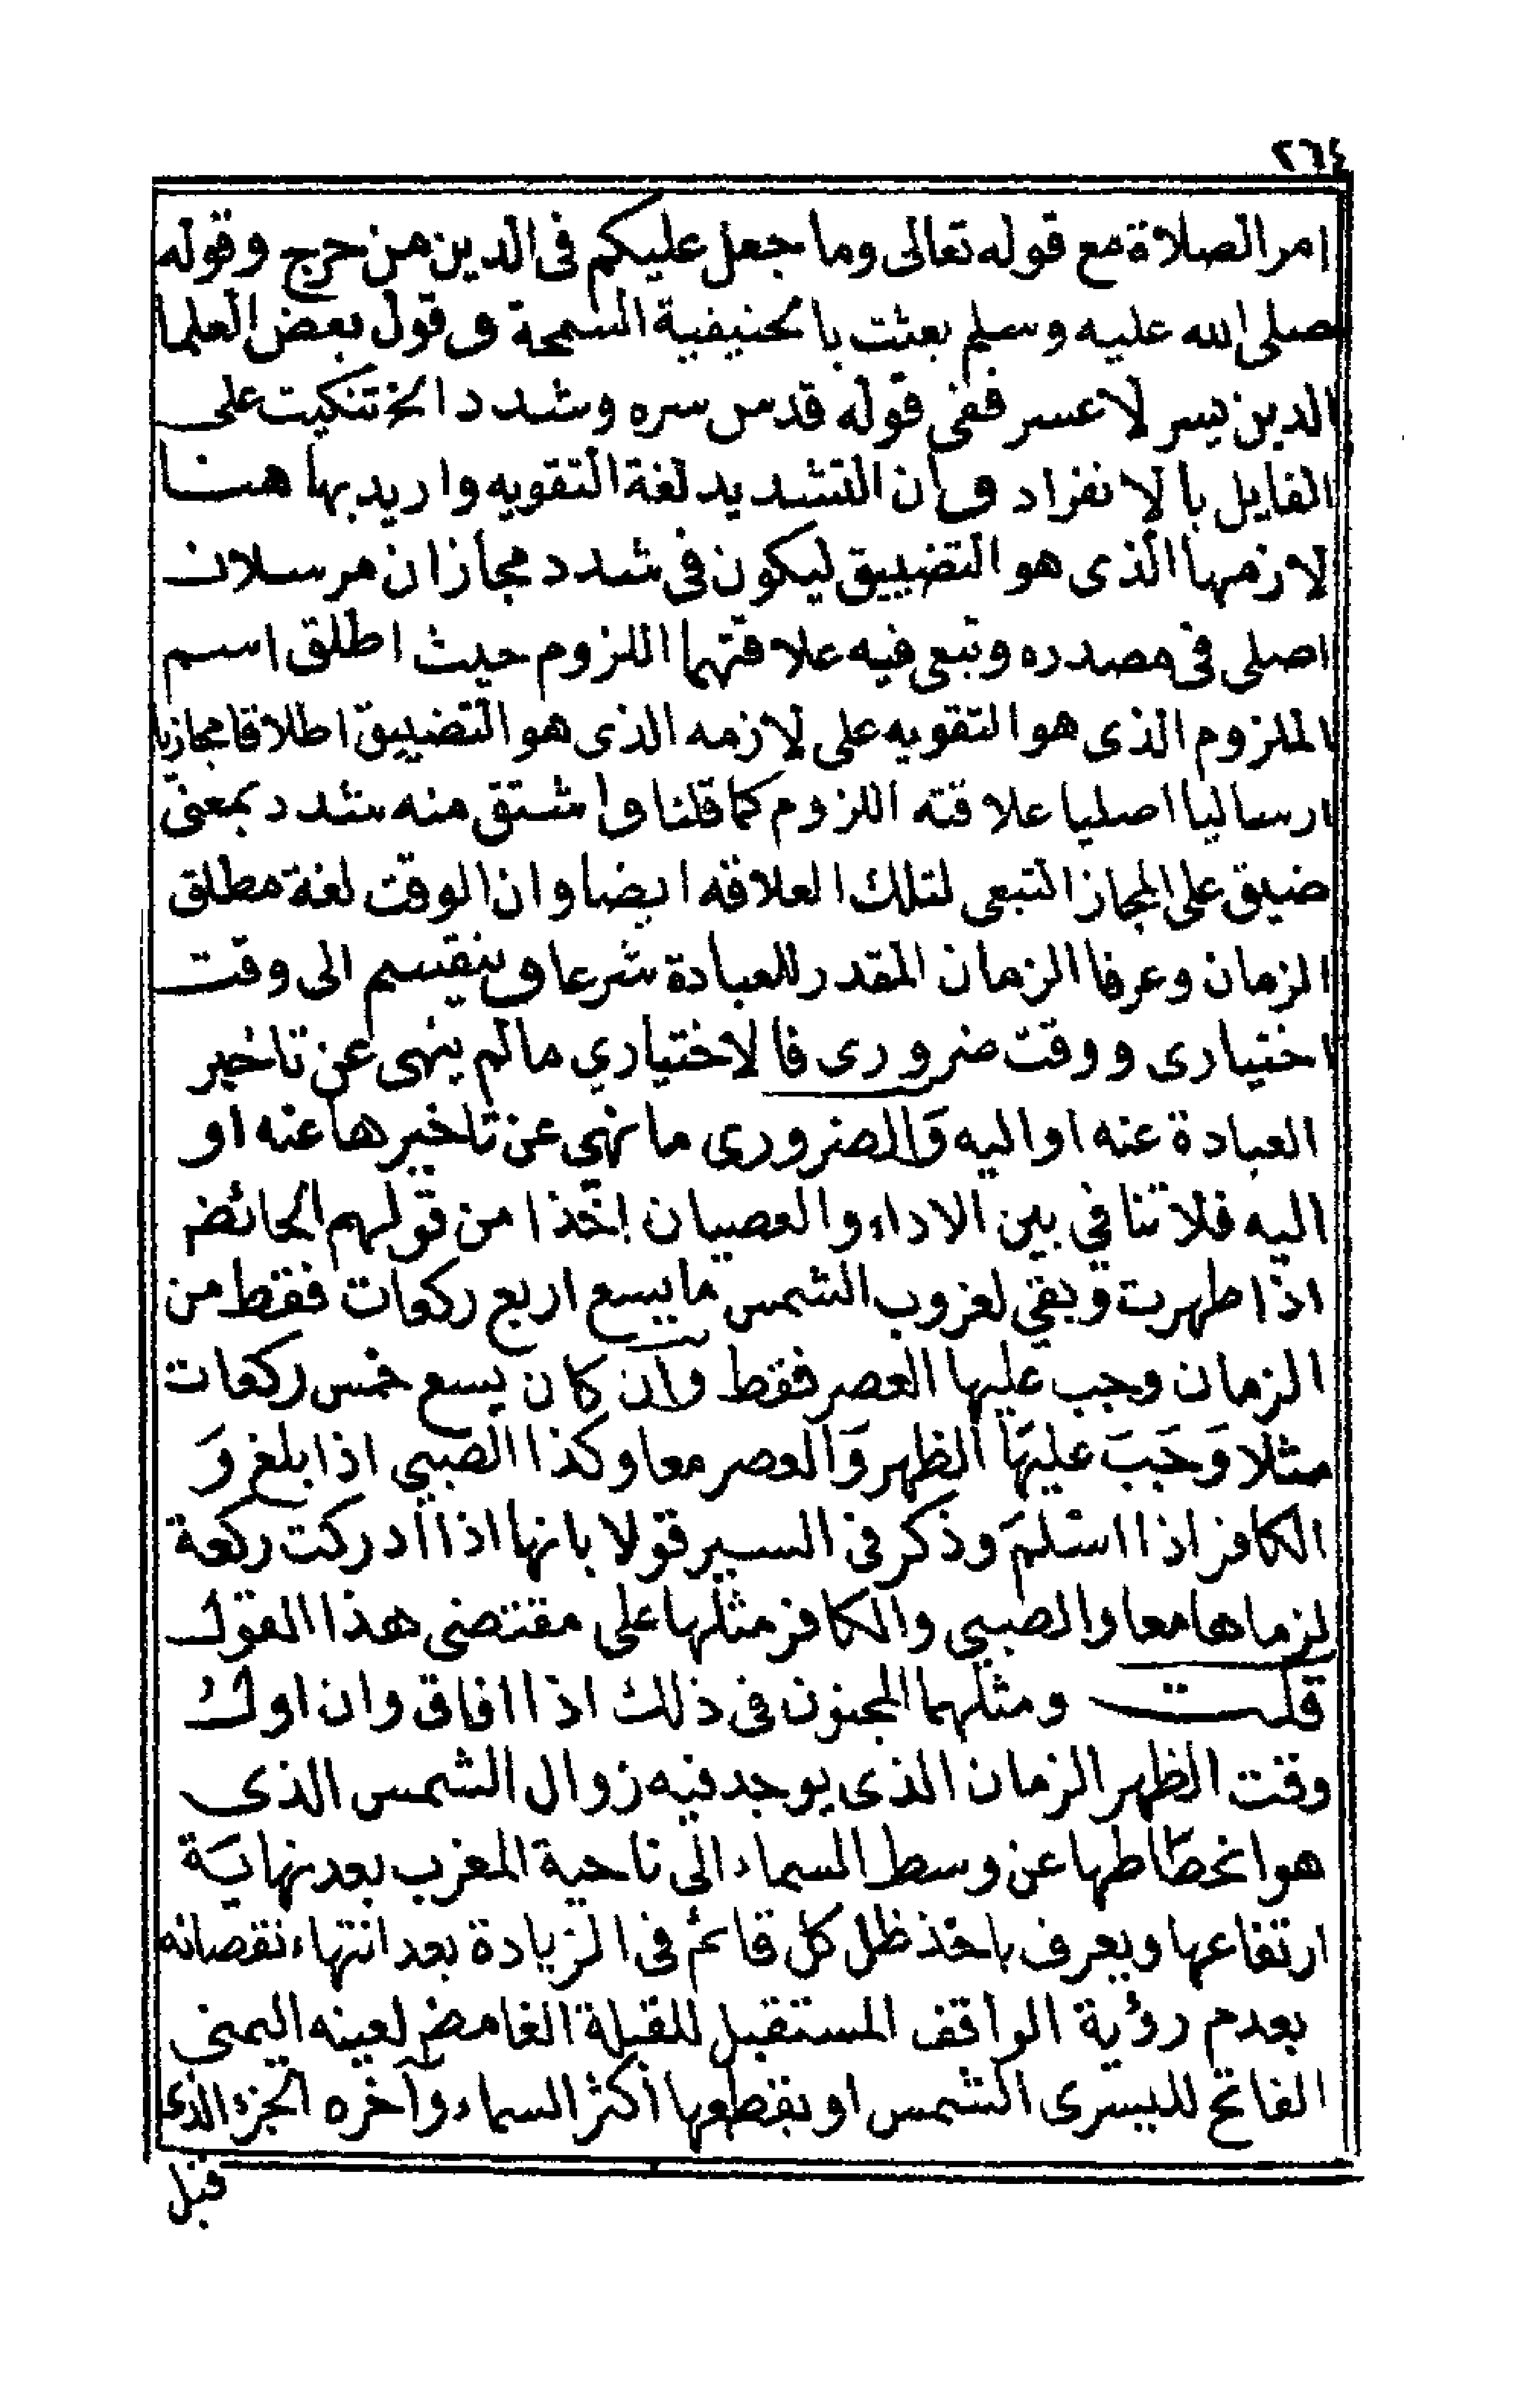 ٢٦٤
امر الصلاة مع قوله تعالى وما جعل عليكم فى الدين من حرج وقوله
صلى الله عليه وسلم بعثت بالحنيفية السمحة وقول بعض العلما
الدين يسر لا عسر ففى قوله قدس سره وشدد الخ تنكيت على
القايل بالانفراد وان التشديد لغة التقويه واريد بها هنا
لازمها الذى هو التضييق ليكون فى شدد مجازان مرسلان
اصلى فى مصدره وتبعى فيه علاقتهما اللزوم حيث اطلق اسم
الملزوم الذى هو التقويه على لازمه الذى هو التضييق اطلاقا مجازيا
ارساليا اصليا علاقته اللزوم كما قلنا واشتق منه شدد بمعنى
ضيق على المجاز التبعى لتلك العلاقه ايضا وان الوقت لغة مطلق
الزمان وعرفا الزمان المقدر للعبادة شرعا وينقسم الى وقت
اختيارى ووقت ضرورى فالاختياري مالم ينهى عن تاخير
العبادة عنه او اليه وَالضرورى ما نهي عن تاخيرها عنه او
اليه فلا تنافي بين الاداء والعصيان اخذا من قولهم الحائض
اذا طهرت وبقي لغروب الشمس ما يسع اربع ركعات فقط من
الزمان وجب عليها العصر فقط وان كان يسع خمس ركعات
مثلا وَجَبَ عليهَا الظهر وَالعصر معا وكذا الصبي اذا بلغ وَ
الكافر اذا اسلمَ وذكر فى السير قولا بانها اذا ادركت ركعة
لزماها معا والصبي والكافر مثلها على مقتضى هذا القول
قلت ومثلهما المجنون فى ذلك اذا افاق وان اول
وقت الظهر الزمان الذى يوجد فيه زوال الشمس الذى
هو انحطاطها عن وسط السماء الى ناحية المغرب بعد نهايَة
ارتفاعها ويعرف باخذ ظل كل قائم فى الزيادة بعد انتهاء نقصانه
بعدم رؤية الواقف المستقبل للقبلة الغامض لعينه اليمنى
الفاتح لليسرى الشمس او بقطعها أكثر السماء وآخره الجزء الذى
قبل